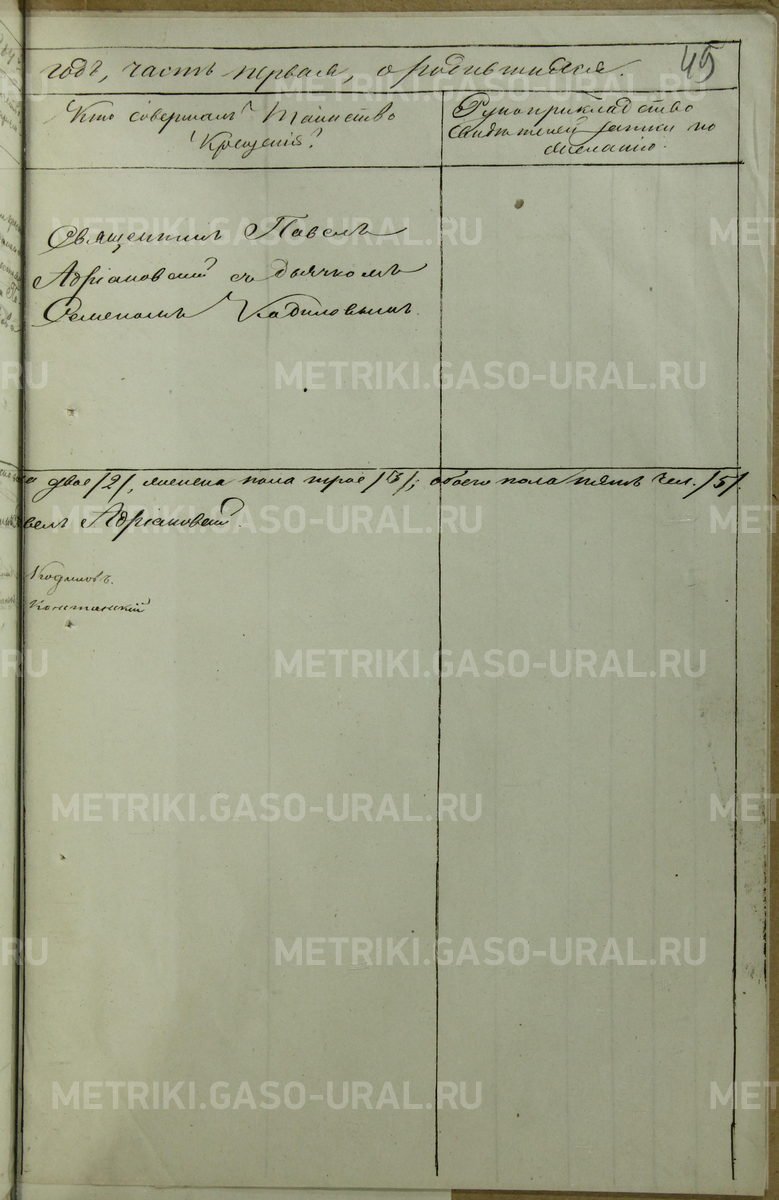 45
годъ, часть первая, о родившихся.
Кто совершалъ Таинство
Крещенія?
Рукоприкладство
свидѣтелей записи по
желанію.
Священникъ Павелъ
Адріановскій съ дьячкомъ
Семеномъ Кадиловымъ.
двое /2/, женска пола трое /3/; обоего пола пять чел. /5/.
велъ Адріановскій.
Кадиловъ.
METRIKI.GASO-URAL.RU